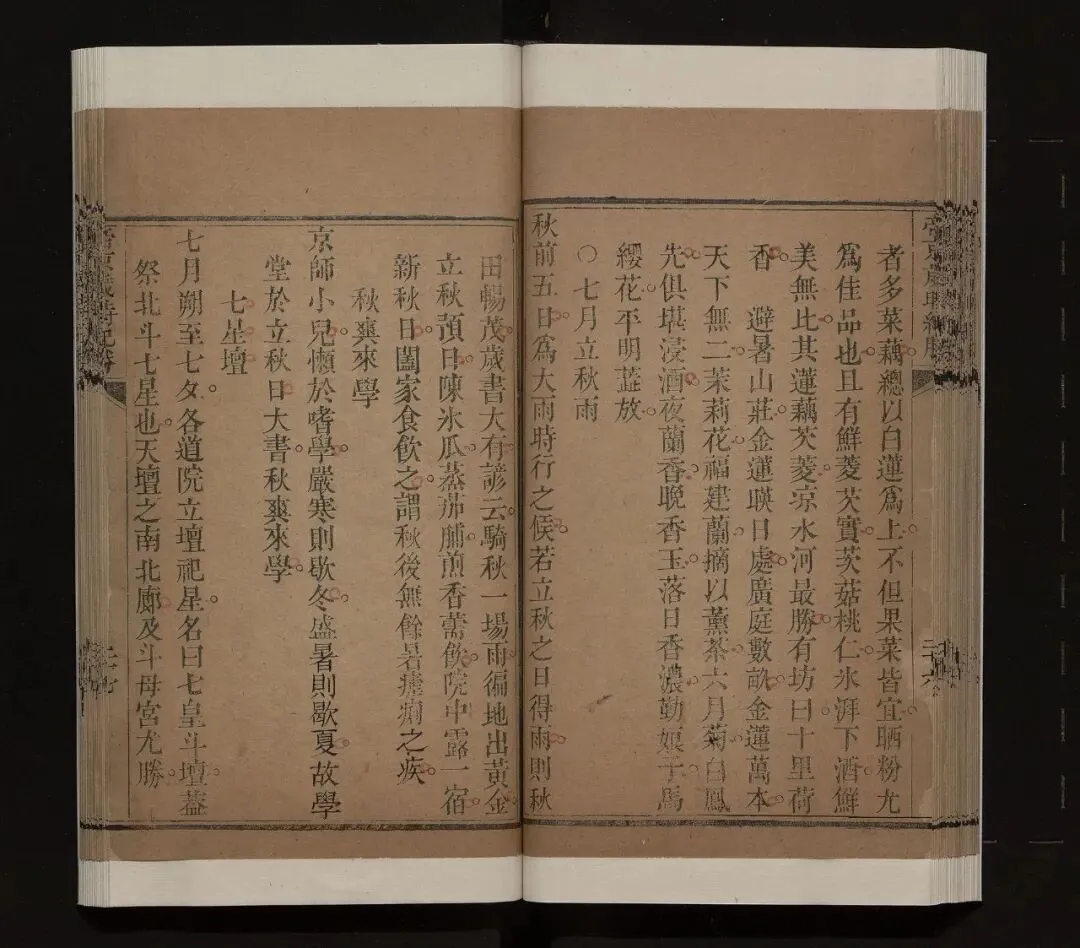 者多菜藕總以白蓮爲上不但果菜皆宜晒粉尤
爲佳品也且有鮮菱芡實茨菇桃仁氷湃下酒鮮
美無比其蓮藕芡菱凉水河最勝有坊曰十里荷
香避暑山莊金蓮暎日處廣庭數畝金蓮萬本
天下無二茉莉花福建蘭摘以薰茶六月菊白鳳
先俱堪浸酒夜蘭香晚香玉落日香濃勤娘子馬
纓花平明蕋放
○七月立秋雨
秋前五日爲大雨時行之候若立秋之日得雨則秋
田暢茂歲書大有諺云騎秋一場雨徧地出黃金
立秋預日陳氷瓜蒸茄脯煎香薷飲院中露一宿
新秋日闔家食飲之謂秋後無餘暑瘧痢之疾
秋爽來學
京師小兒懶於嗜學嚴寒則歇冬盛暑則歇夏故學
堂於立秋日大書秋爽來學
七星壇
七月朔至七夕各道院立壇祀星名曰七皇斗壇葢
祭北斗七星也天壇之南北廊及斗母宮尤勝